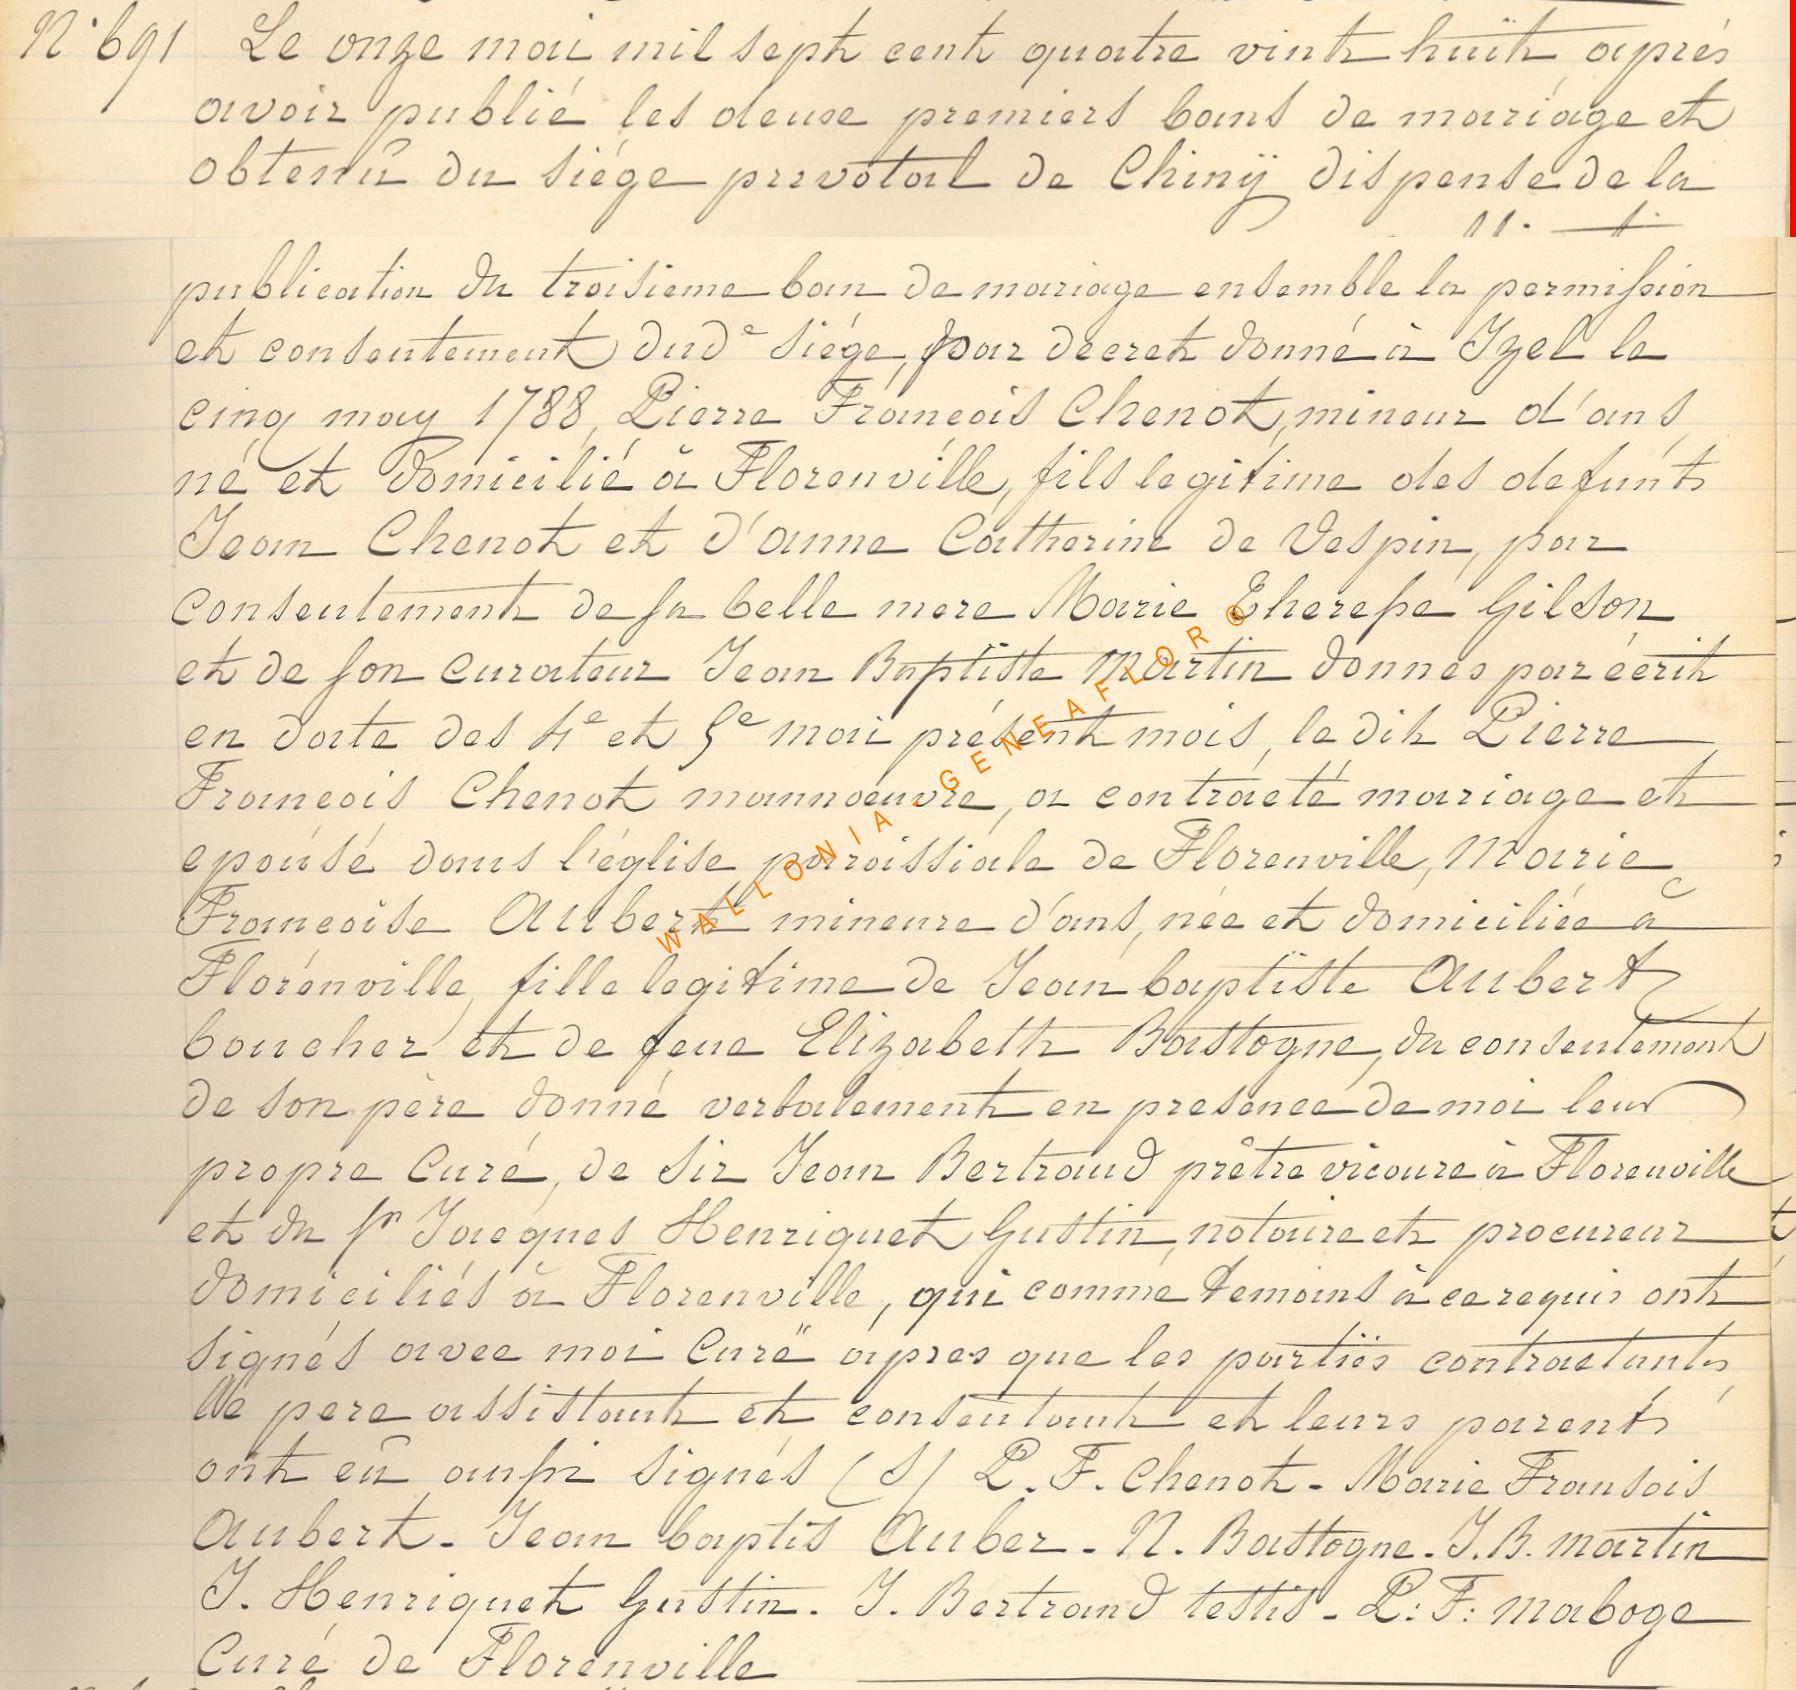 N° 691 Le onze mai mil sept cent quatre vint huit aprés
avoir publié les deux premiers bans de mariage et
obtenû du siége prevotal de Chinÿ dispense de la
publication du troisieme ban de mariage ensemble la permission
et consentement dudᵉ siége, par decret donné à Izel le
cinq may 1788, Pierre François Chenot, mineur d'ans,
né et domicilié à Florenville, fils legitime des defunts
Jean Chenot et d'anne Catherine de Vespin, par
consentement de sa belle mere Marie Therese Gilson
et de son curateur Jean Baptiste Martin donnés par écrit
en date des 4ᵉ et 5ᵉ mai présent mois, le dit Pierre
François Chenot mannoeuvre, a contracté mariage et
epousé dans l'église paroissiale de Florenville, Marie
Françoise Aubert mineure d'ans, née et domiciliée à
Florenville, fille legitime de Jean baptiste Aubert
boucher et de feue Elizabeth Bastogne, du consentement
de son père donné verbalement en presence de moi leur
propre Curé, de Sir Jean Bertrand prêtre vicaire à Florenville
et du Sr Jacques Henriquet Gustin, notaire et procureur
domiciliés à Florenville, qui comme temoins à ce requis ont
signés avec moi Curé apres que les parties contractants
le pere assistant et consentant et leurs parents
ont eû aussi signés (S) P. F. Chenot - Marie Fransois
Aubert - Jean baptis Auber - N. Bastogne - J. B. Martin
J. Henriquet Gustin. J. Bertrand testis - P: F: Maboge
Curé de Florenville
WALLONIA - GENEAFLOR ®